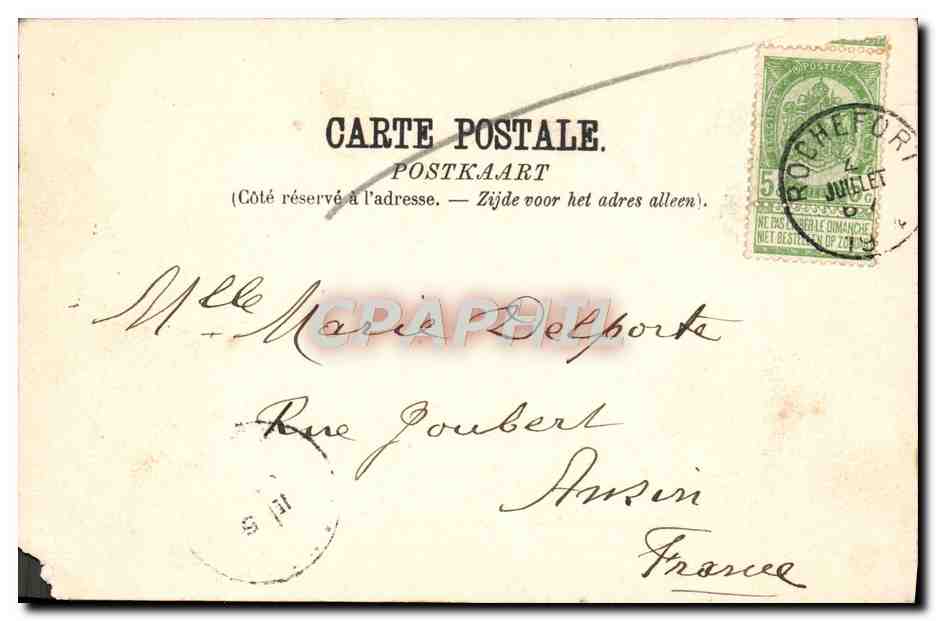 CARTE POSTALE.
POSTKAART
(Côté réservé à l'adresse. — Zijde voor het adres alleen).
POSTES
5
NE PAS LIVRER LE DIMANCHE
NIET BESTELLEN OP ZONDAG
ROCHEFORT
4
JUILLET
19
CPAPHIL
Mlle Marie Delporte
Rue Joubert
Anzin
France